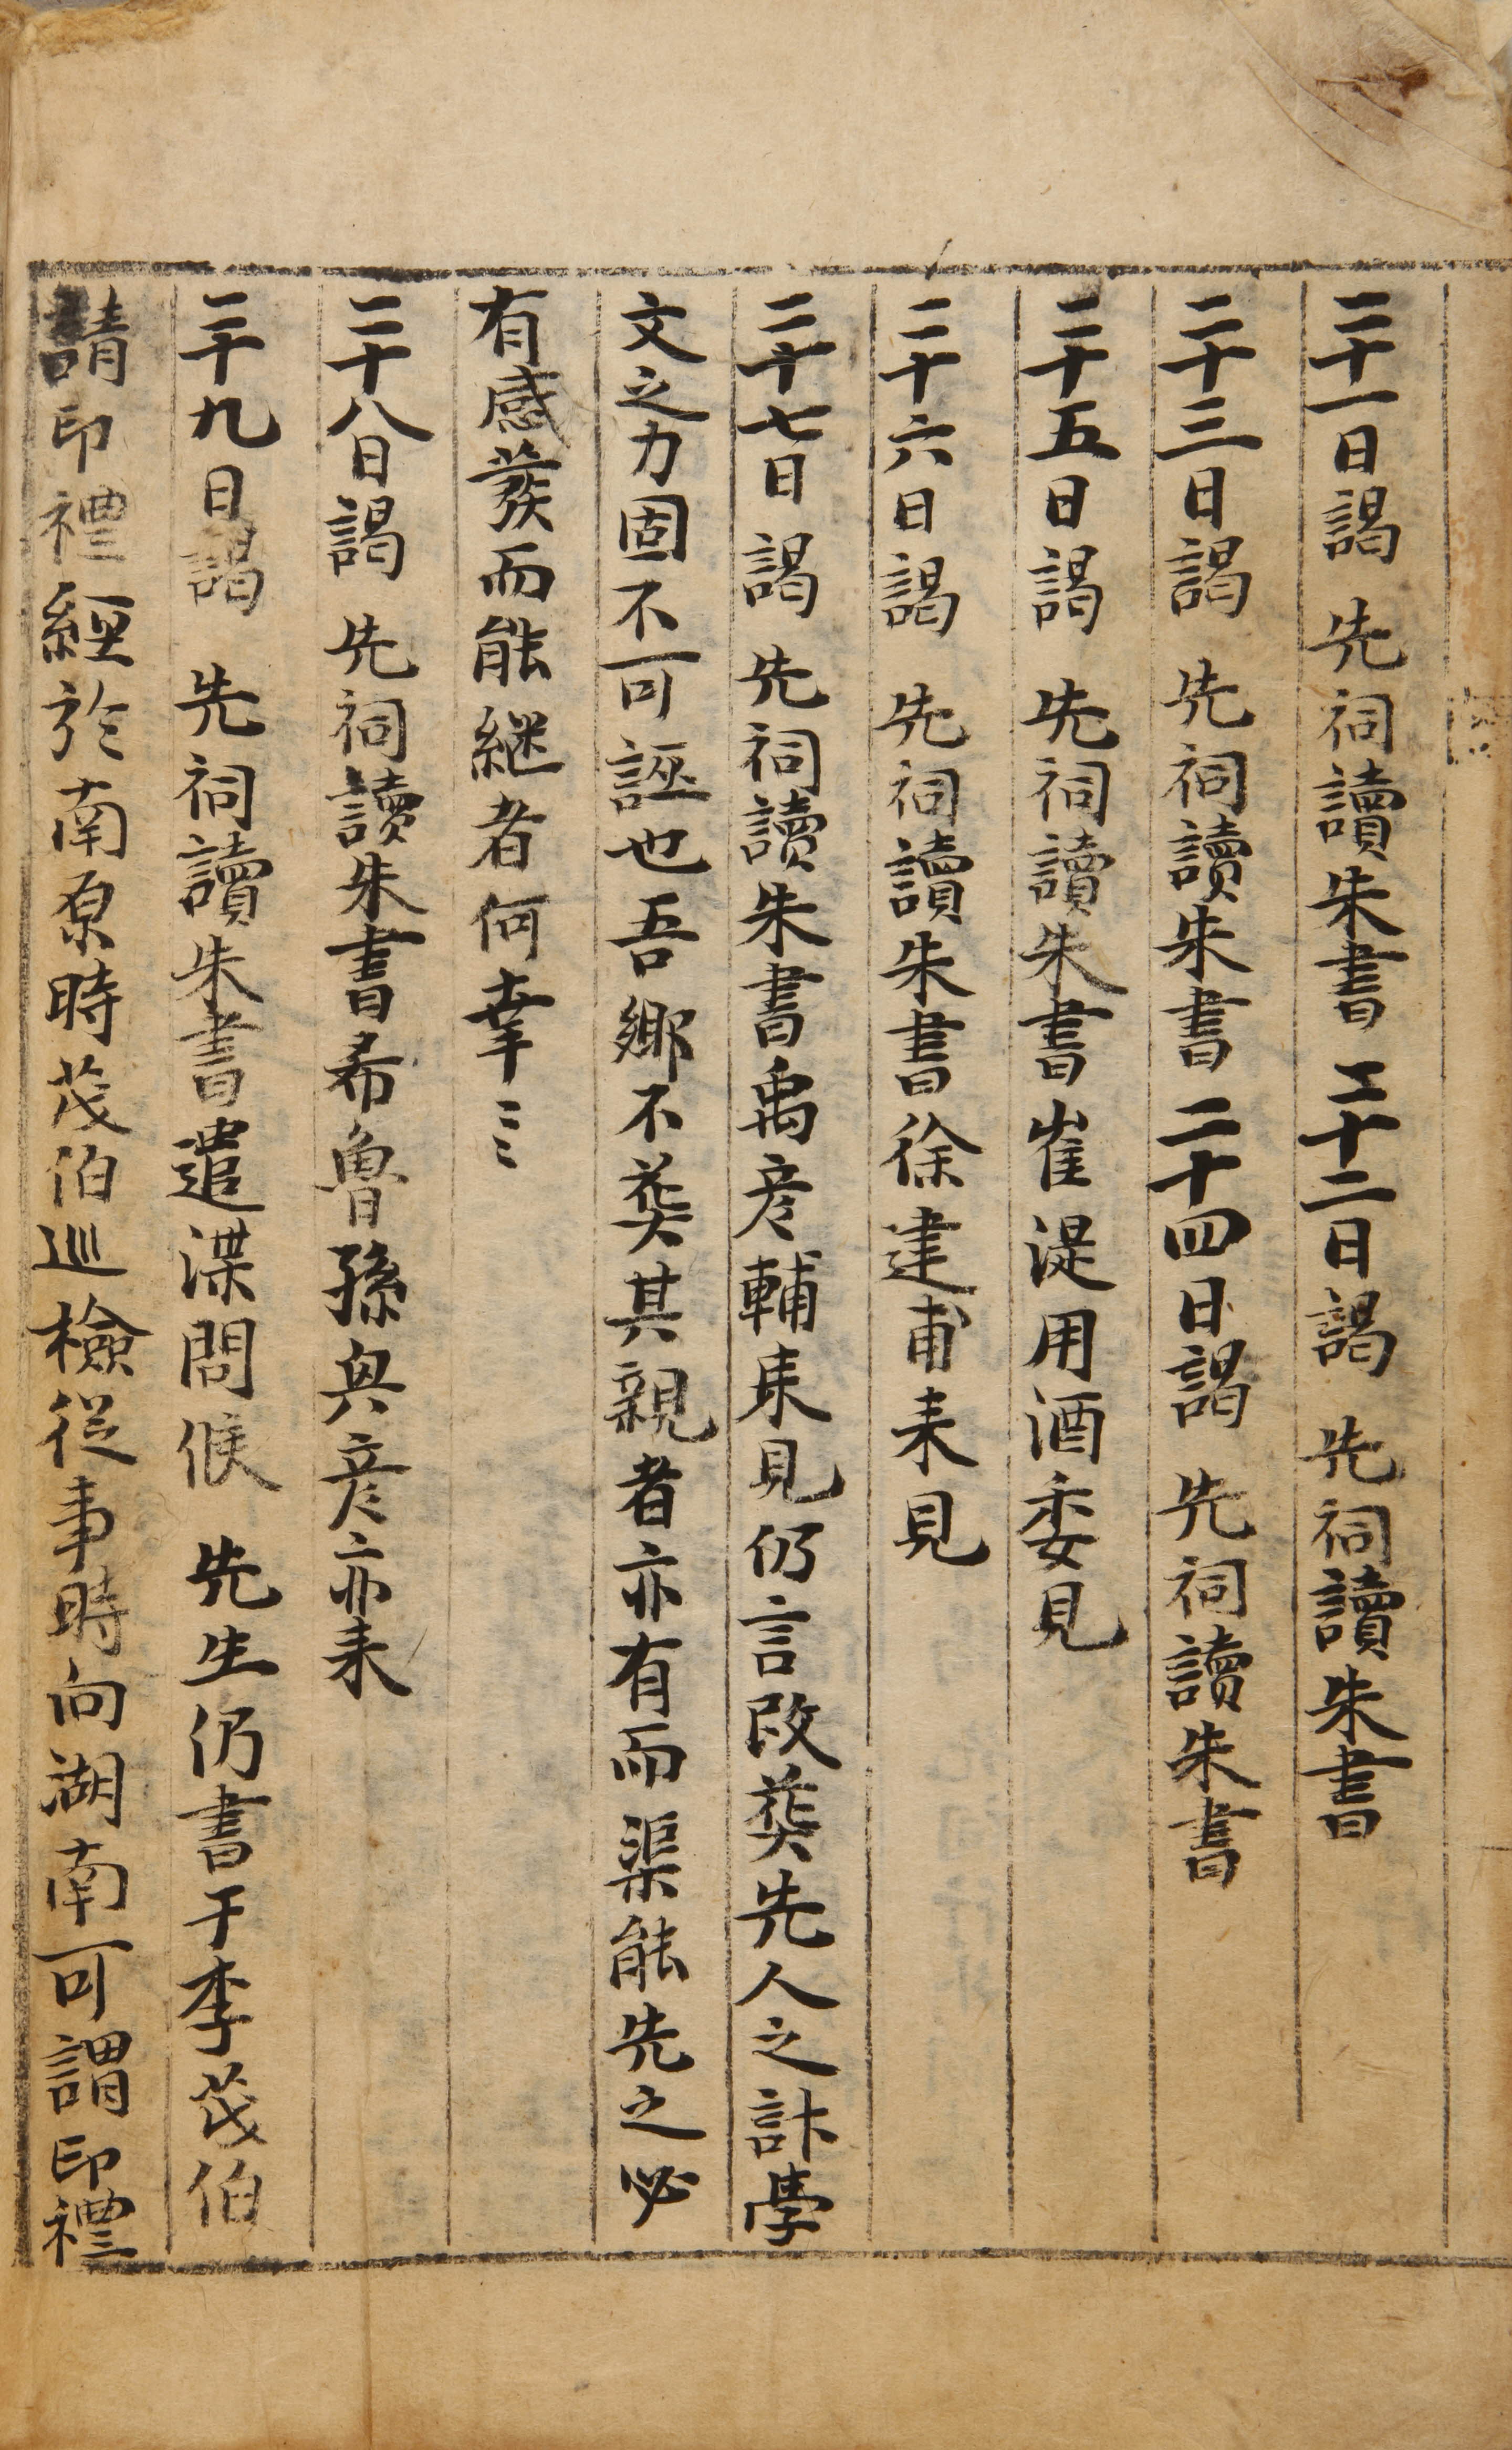 二十一日謁 先祠讀朱書 二十二日謁 先祠讀朱書
二十三日謁 先祠讀朱書 二十四日謁 先祠讀朱書
二十五日謁 先祠讀朱書崔湜用酒委見
二十六日謁 先祠讀朱書徐建甫来見
二十七日謁 先祠讀朱書禹彦輔来見仍言改葬先人之計學
文之力固不可誣也吾鄉不葬其親者亦有而渠能先之必
有感發而能継者何幸〻〻
二十八日謁 先祠讀朱書希魯孫與彦亦来
二十九日謁 先祠讀朱書遣渫問候 先生仍書于李茂伯
請印禮經於南原時茂伯巡檢從事時向湖南可謂印禮